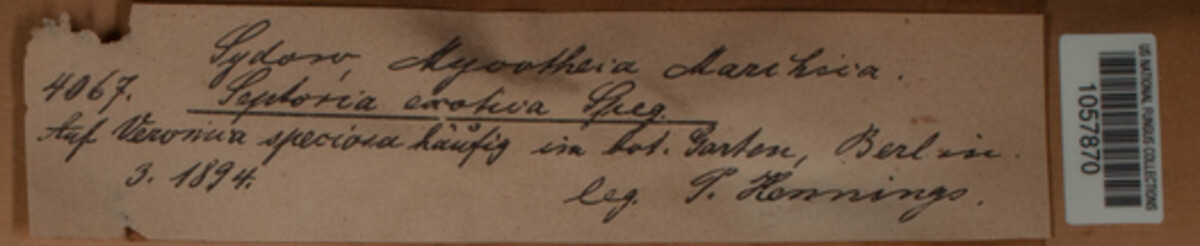 Sydow, Mycotheca Marchica.
4067. Septoria exotica Speg.
Auf Veronica speciosa häufig im bot. Garten, Berlin.
3. 1894.
leg. P. Hennings.
US NATIONAL FUNGUS COLLECTIONS
1057870